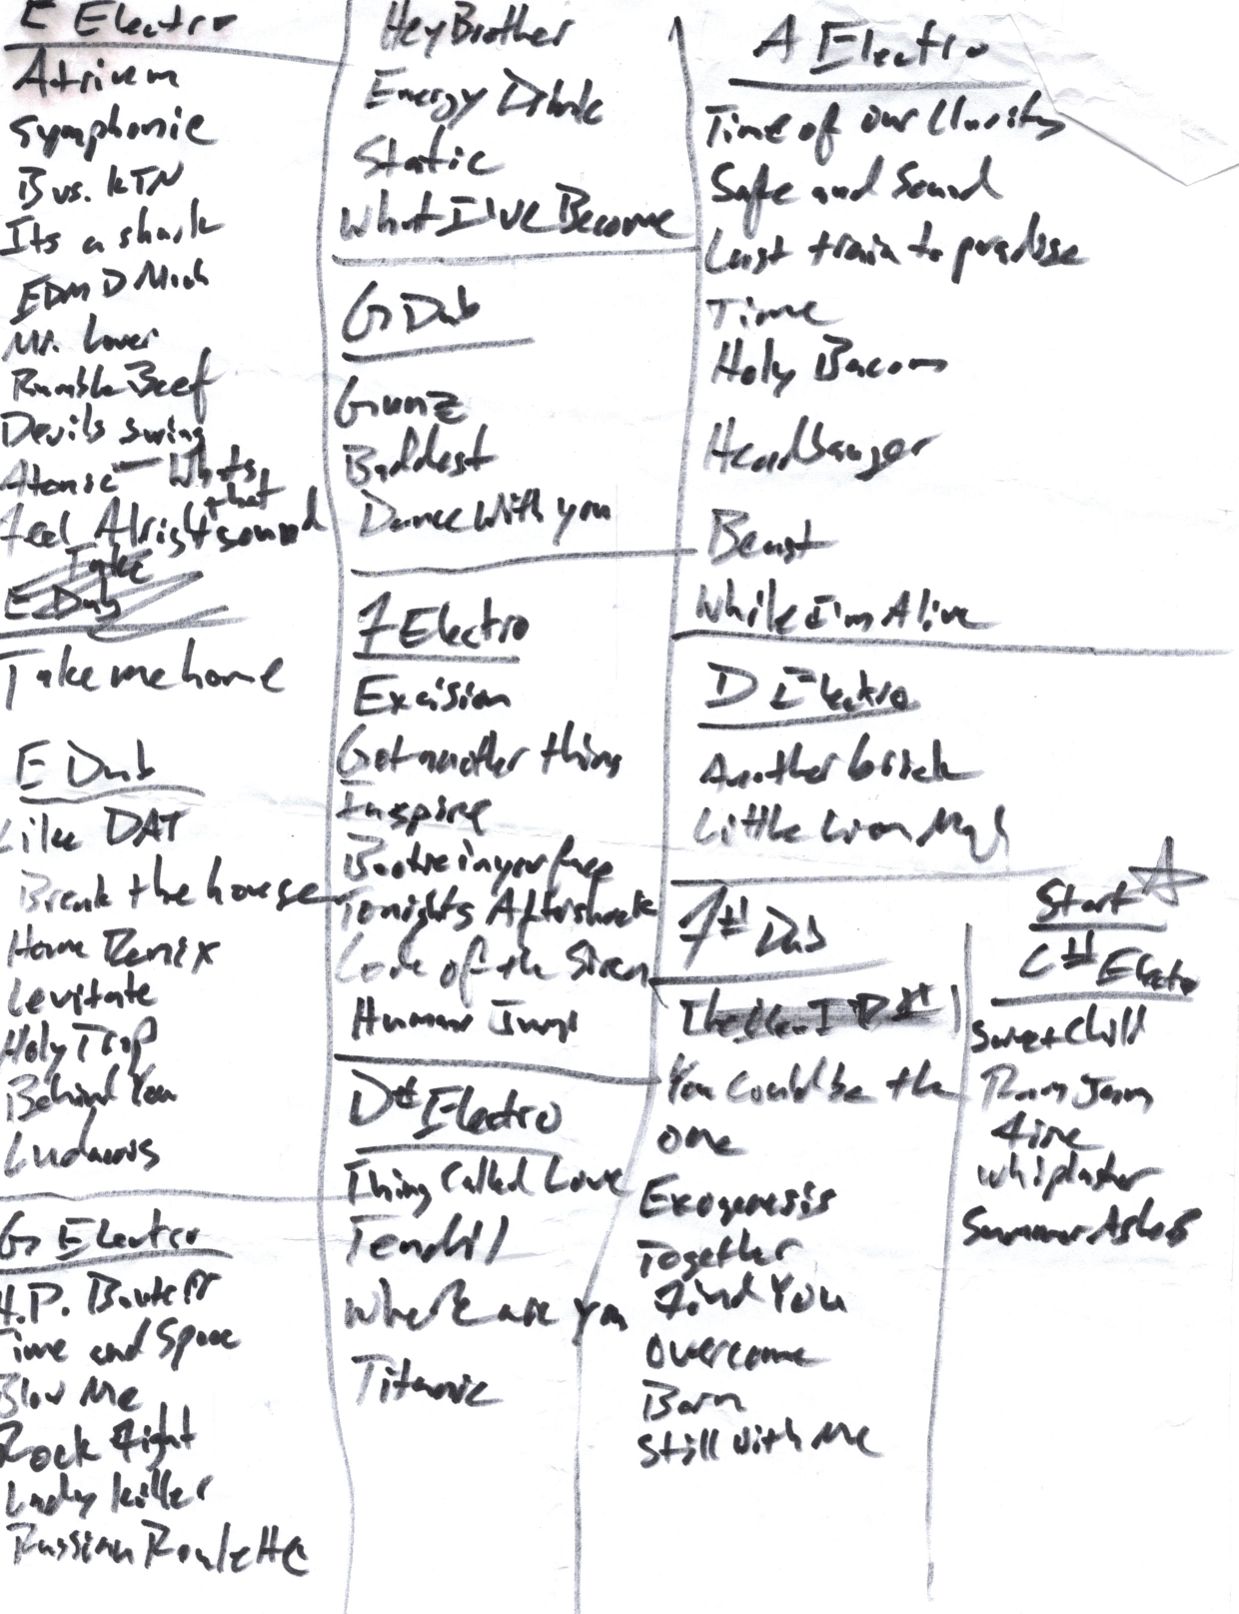 E Electro
Atrium
Symphonic
B vs. KTN
Its a shark
EDM D Mich
Mr. Lover
Rumble Beef
Devils swing
Atomic — Whats that sound
Feel Alright
Take
E Dub
Take me home
E Dub
Like DAT
Break the house
Home Remix
Levitate
Holy Trap
Behind You
Ludacris
G Electro
H.P.
Time and Space
Blow Me
Rock Fight
Lady killer
Russian Roulette
Hey Brother
Energy Drink
Static
What I've Become
G Dub
Gunz
Baddest
Dance With you
F Electro
Excision
Got another thing
Inspire
Bootie in yer face
Tonights Aftershock
Code of the Siren
Human
D# Electro
Thing Called Love
Tendril
Where are you
Titanic
A Electro
Time of our Clarity
Safe and Sound
Last train to pradise
Time
Holy Bacon
Headbanger
Beast
While I'm Alive
D Electro
Another brick
Little Lion
F# Dub
You Could be the
one
Exogenesis
Together
Find You
Overcome
Born
Still With Me
Start
C# Electro
Sweet Chill
Ram Jam
Fire
Whiplaster
Summer Ashes